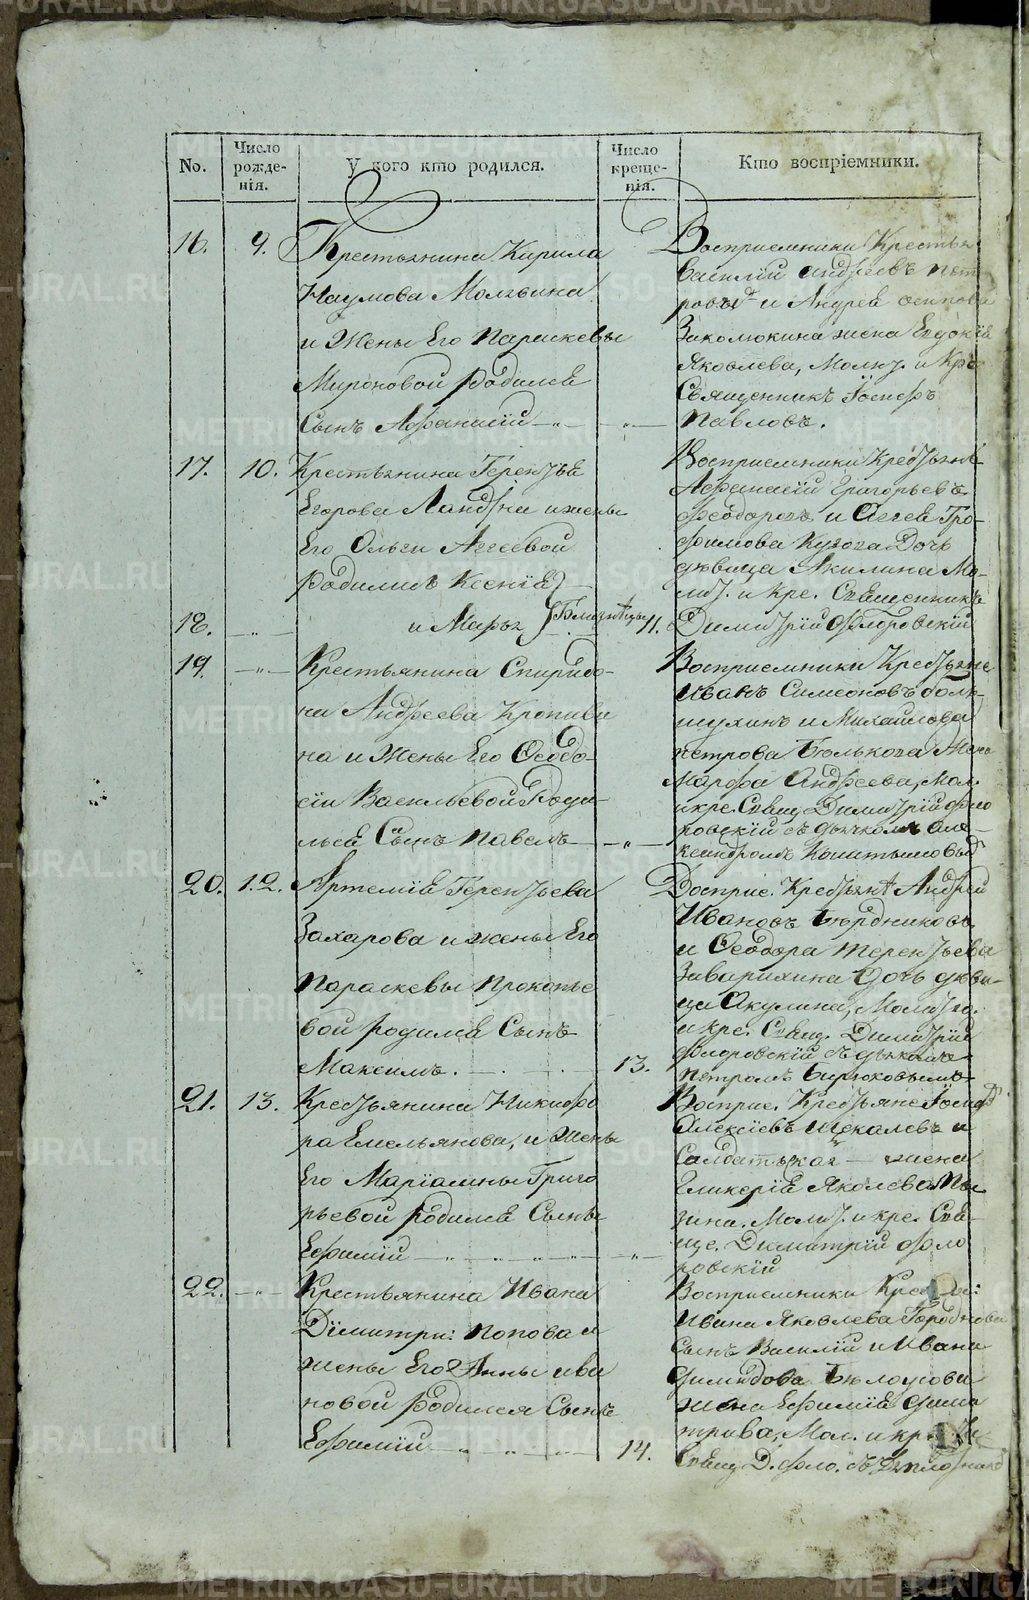 No.
Число рожде-нія.
У кого кто родился.
Число креще-нія.
Кто воспріемники.
16. 9. Крестьянина Кирила
Наумова Молвина
и Жены Его Параскевы
Мироновой родился
Сынъ Афанасій
Восприемники Крестья
Василій Андреевъ Пет
ровъ и Андрея осипова
Заколюкина жена Евдокія
Яковлева, Молит. и Кре
Священникъ Іосифъ
Павловъ.
17. 10. Крестьянина Терентья
Егорова и жены
Его Ольги Агеевой
родились Ксенія
18. и Марья Близнецы 11.
Восприемники Крестьяне
Афанасій Григорьевъ
и Агея Тро-
фимова Дочь
девица Акилина Мо-
лит. и кре. Священникъ
Димитрій Флоровскій
19. Крестьянина Спиридо-
на Андреева Кропиви
на и Жены Его Феодо-
сіи Васильевой Роди
лся Сынъ Павелъ
Восприемники Крестьяне
Иванъ Симеоновъ Боль-
шухинъ и Михайлова
петрова Жена
Марфа Андреева, Мол.
и кре. Свящ. Димитрій Фло
ровскій съ дьячкомъ Але-
ксандромъ
20. 12. Артемія Терентьева
Захарова и жены Его
Параскевы Прокопье
вой родился Сынъ
Максимъ. 13.
Восприе. Крестьяне Андрей
Ивановъ Бердниковъ
и Феодора Терентьева
Заварихина Дочь деви-
ца Акулина, Молит.
и кре. Свящ. Димитрій
Флоровскій съ дьячкомъ
петромъ Бирюковымъ
21. 13. Крестьянина Никифо
ра Емельянова, и Жены
Его Маріамны Григо
рьевой родился Сынъ
Ефимій
Восприе. Крестьяне Іосифъ
Алексіевъ Щекалевъ и
Салдатская жена
Гликерія Яковлева
Молит. и кре. Свя-
ще. Димитрій Фло
ровскій
22. Крестьянина Ивана
Димитри: Попова и
жены Его Анны ива
новой родился Сынъ
Ефимій 14.
Восприемники
Ивана Яковлева
Сынъ Василій и Ивана
Белоусова
жена Ефимія
Мол. и кр.
Свящ. Д. Фло. съ
METRIKI.GASO-URAL.RU